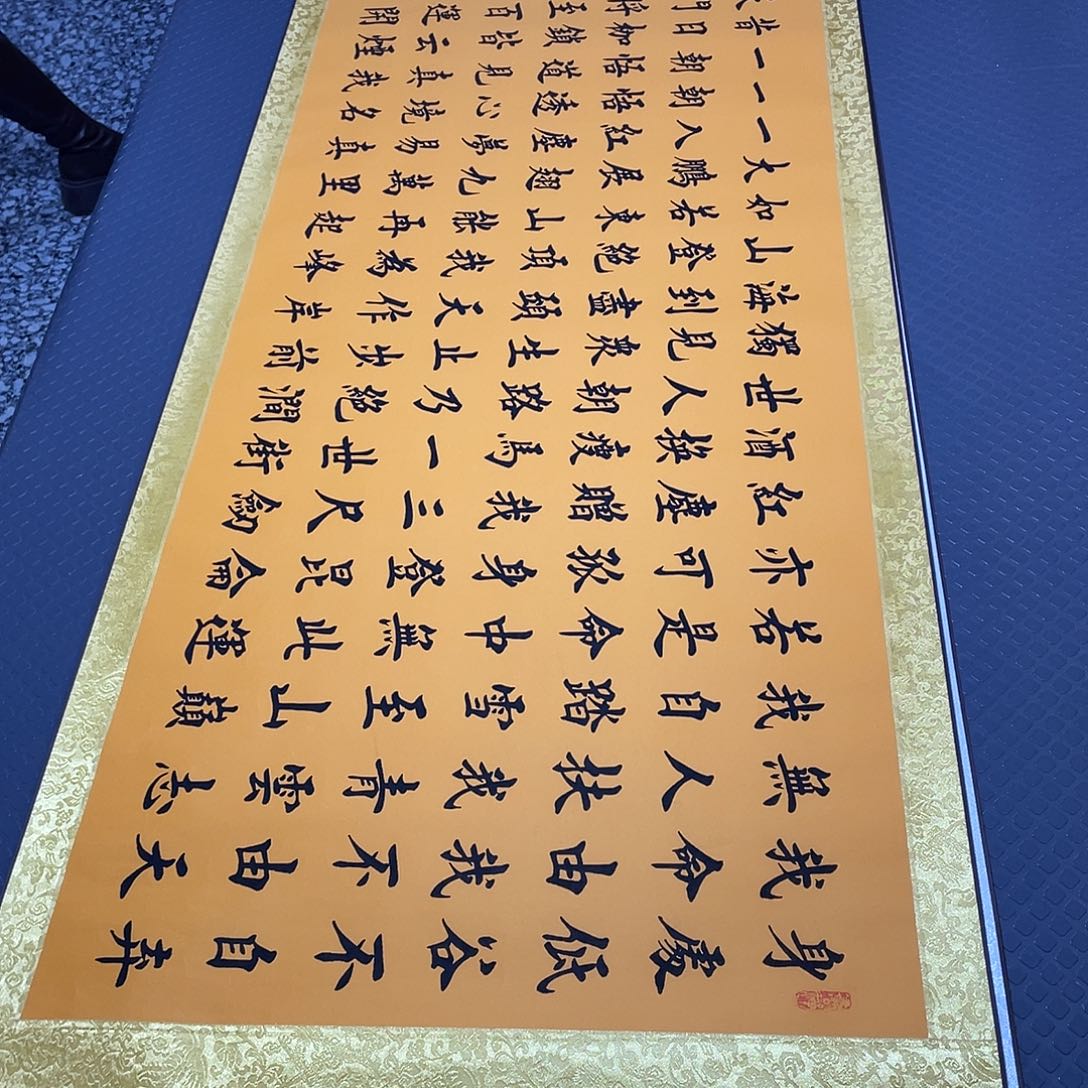 身處低谷不自弃
我命由我不由天
無人扶我青雲志
我自踏雪至山巔
若是命中無此運
亦可孤身登昆侖
紅塵贈我三尺劍
酒換瘦馬一世街
世人朝路乃絕澗
獨見眾生止步前
海到盡頭天作岸
山登絕頂我為峰
如若東山能再起
大鵬展翅九萬里
一入紅塵夢易真
一朝悟透心境名
一朝悟道見真我
昔日枷鎖皆云煙
門將至百運開